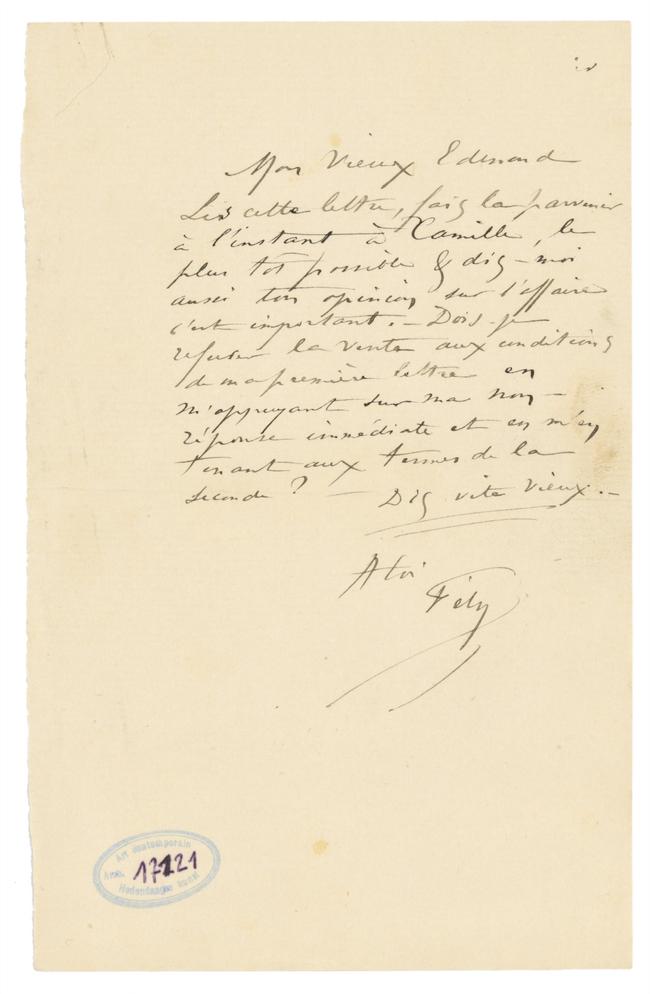 Mon Vieux Edmond
Lis cette lettre, fais la parvenir
à l'instant à Camille, le
plus tôt possible & dis-moi
aussi ton opinion sur l'affaire
c'est important. - Dois-je
refuser la vente aux conditions
de ma première lettre en
m'appuyant sur ma non-
réponse immédiate et en m'en
tenant aux termes de la
seconde ? - Dis vite Vieux. -
A toi
Fély
Art contemporain
17121
Hedendaagse kunst